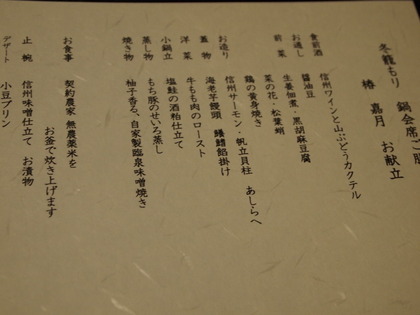 冬籠もり 鍋会席ご膳
椿 嘉月 お献立
食前酒 信州ワインと山ぶどうカクテル
お通し 醤油豆
前菜 生姜佃煮・黒胡麻豆腐
菜の花・松葉蛸
鶏の黄身焼き
お造り 信州サーモン・帆立貝柱 あしらへ
蓋物 海老芋饅頭 鱶鰭餡掛け
洋菜 牛もも肉のロースト
小鍋立 塩鮭の酒粕仕立て
蒸し物 もち豚のせいろ蒸し
焼き物 柚子香る、自家製臨泉味噌焼き
お食事 契約農家 無農薬米を
お釜で炊き上げます
止椀 信州味噌仕立て お漬物
デザート 小豆プリン